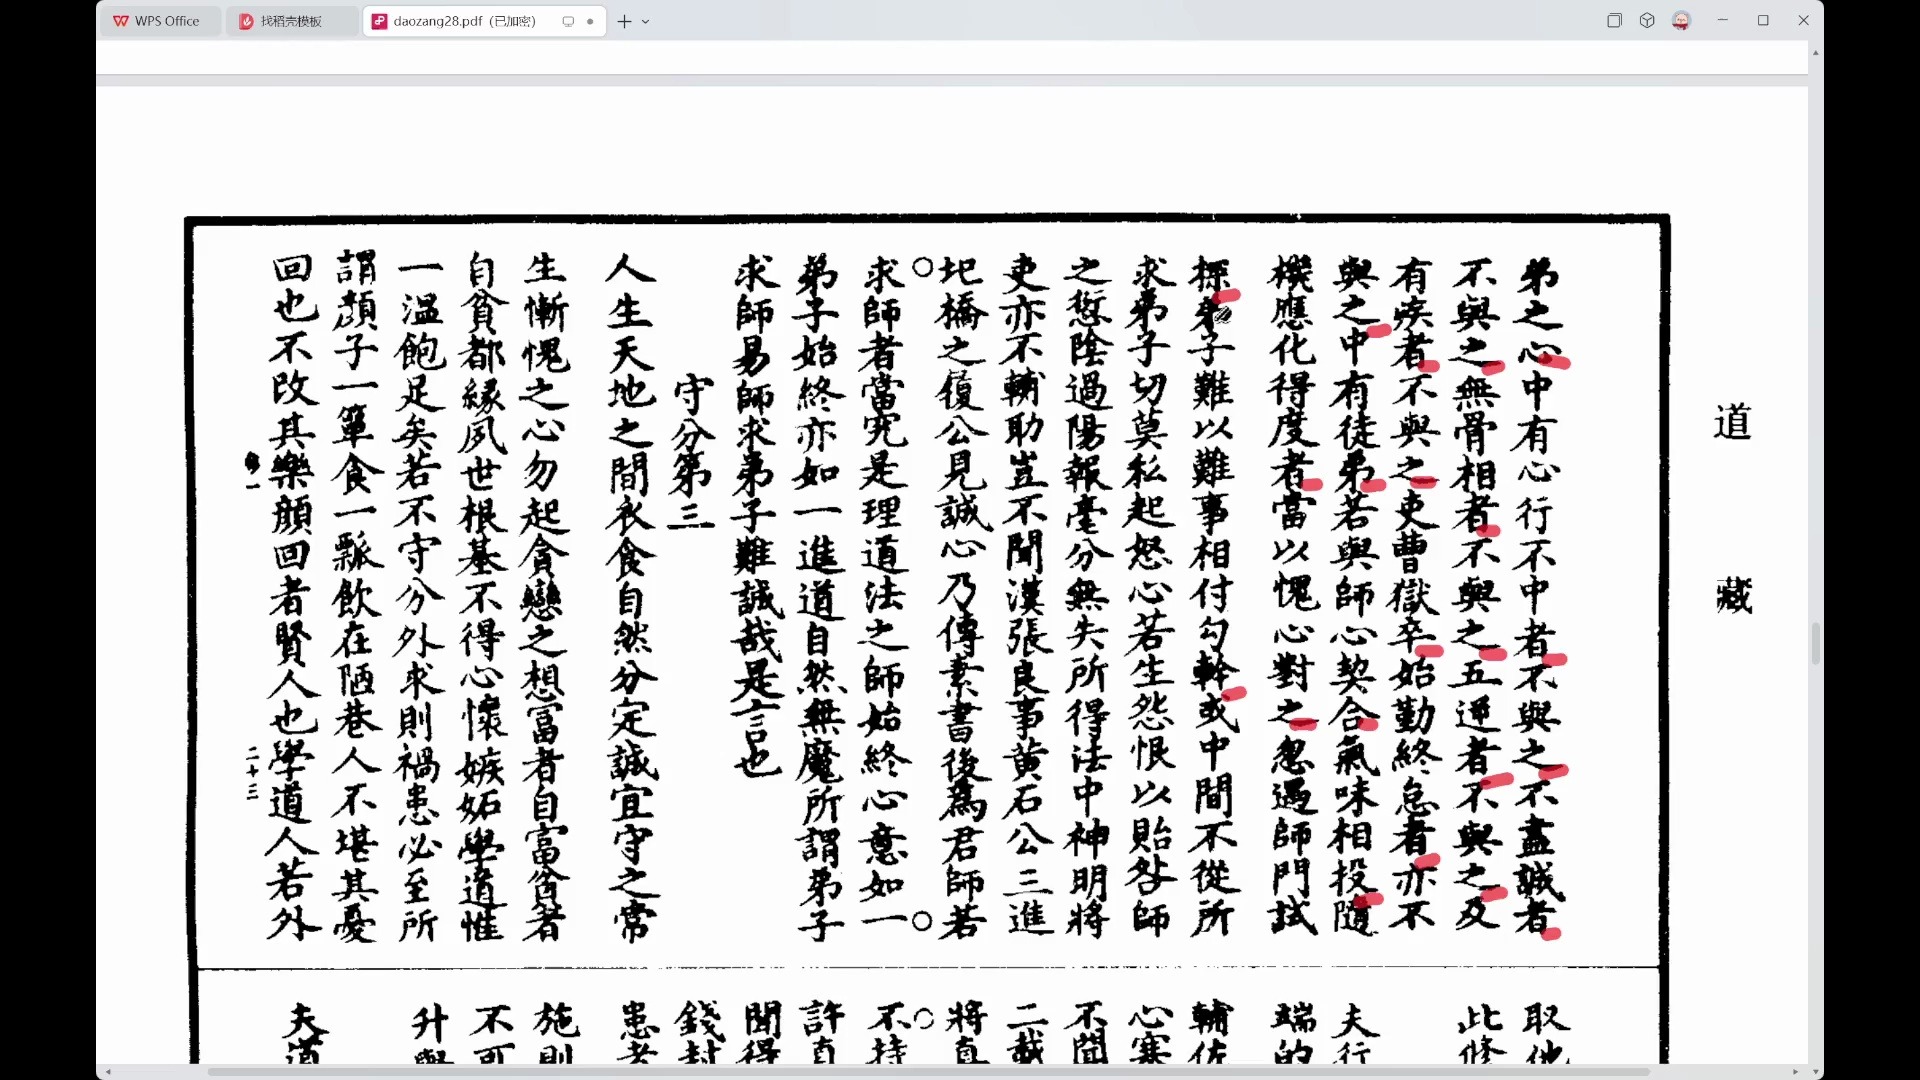 WPS Office
找稻壳模板
daozang28.pdf (已加密)
道藏
弟之心中有心行不中者不與之不盡誠者
不與之無骨相者不與之五逆者不與之及
有疾者不與之吏曹獄卒始勤終怠者亦不
與之中有徒弟若與師心契合氣味相投隨
機應化得度者當以愧心對之忽遇師門試
探弟子難以難事相付勾幹或中間不從所
求弟子切莫私起怒心若生怨恨以貽咎師
之愆陰過陽報毫分無失所得法中神明將
吏亦不輔助豈不聞漢張良事黃石公三進
圯橋之履公見誠心乃傳素書後爲君師若
求師者當究是理道法之師始終心意如一
弟子始終亦如一進道自然無魔所謂弟子
求師易師求弟子難誠哉是言也
守分第三
人生天地之間衣食自然分定誠宜守之常
生慚愧之心勿起貪戀之想富者自富貧者
自貧都緣夙世根基不得心懷嫉妬學道惟
一溫飽足矣若不守分外求則禍患必至所
謂顏子一簞食一瓢飲在陋巷人不堪其憂
回也不改其樂顏回者賢人也學道人若外
二十三
取他
此修
夫行
端的
輔佐
心塞
不聞
二載
將真
不持
許真
聞得
錢封
患者
施則
不可
升與
夫道